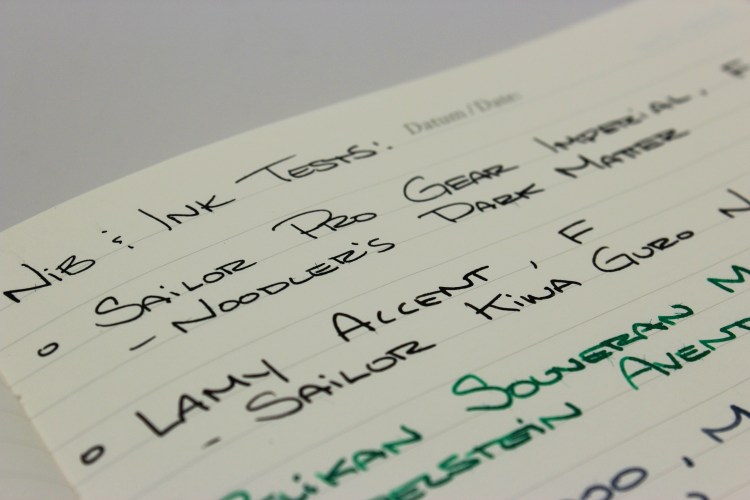 Datum / Date:
NIB & INK TESTS:
o SAILOR PRO GEAR IMPERIAL, F
- NOODLER'S DARK MATTER
o LAMY ACCENT, F
- SAILOR KIWA GURO N
PELIKAN SOUVERAN M
EDELSTEIN AVENT
00, M